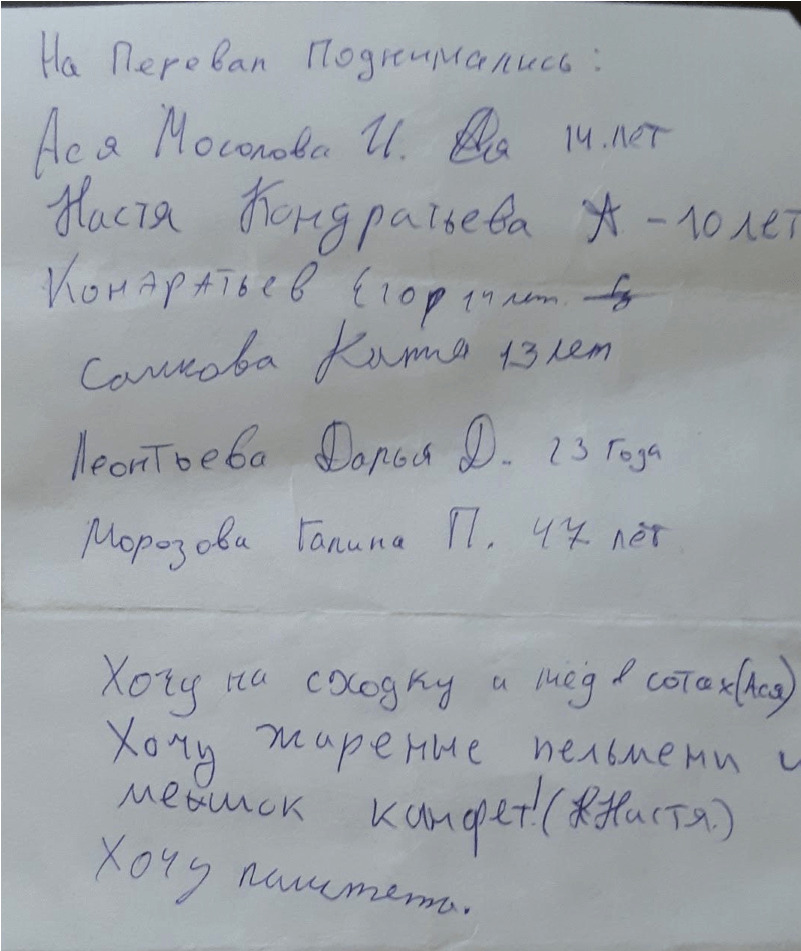 На Перевал Поднимались:
Ася Мосолова И. 14.лет
Настя Кондратьева А - 10 лет
Кондратьев Егор 14 лет.
Сомкова Катя 13 лет
Леонтьева Дарья Д. 23 года
Морозова Галина П. 47 лет
Хочу на сходку и мёд в сотах (Ася)
Хочу жареные пельмени и
мешок конфет! (Настя.)
Хочу паштета.